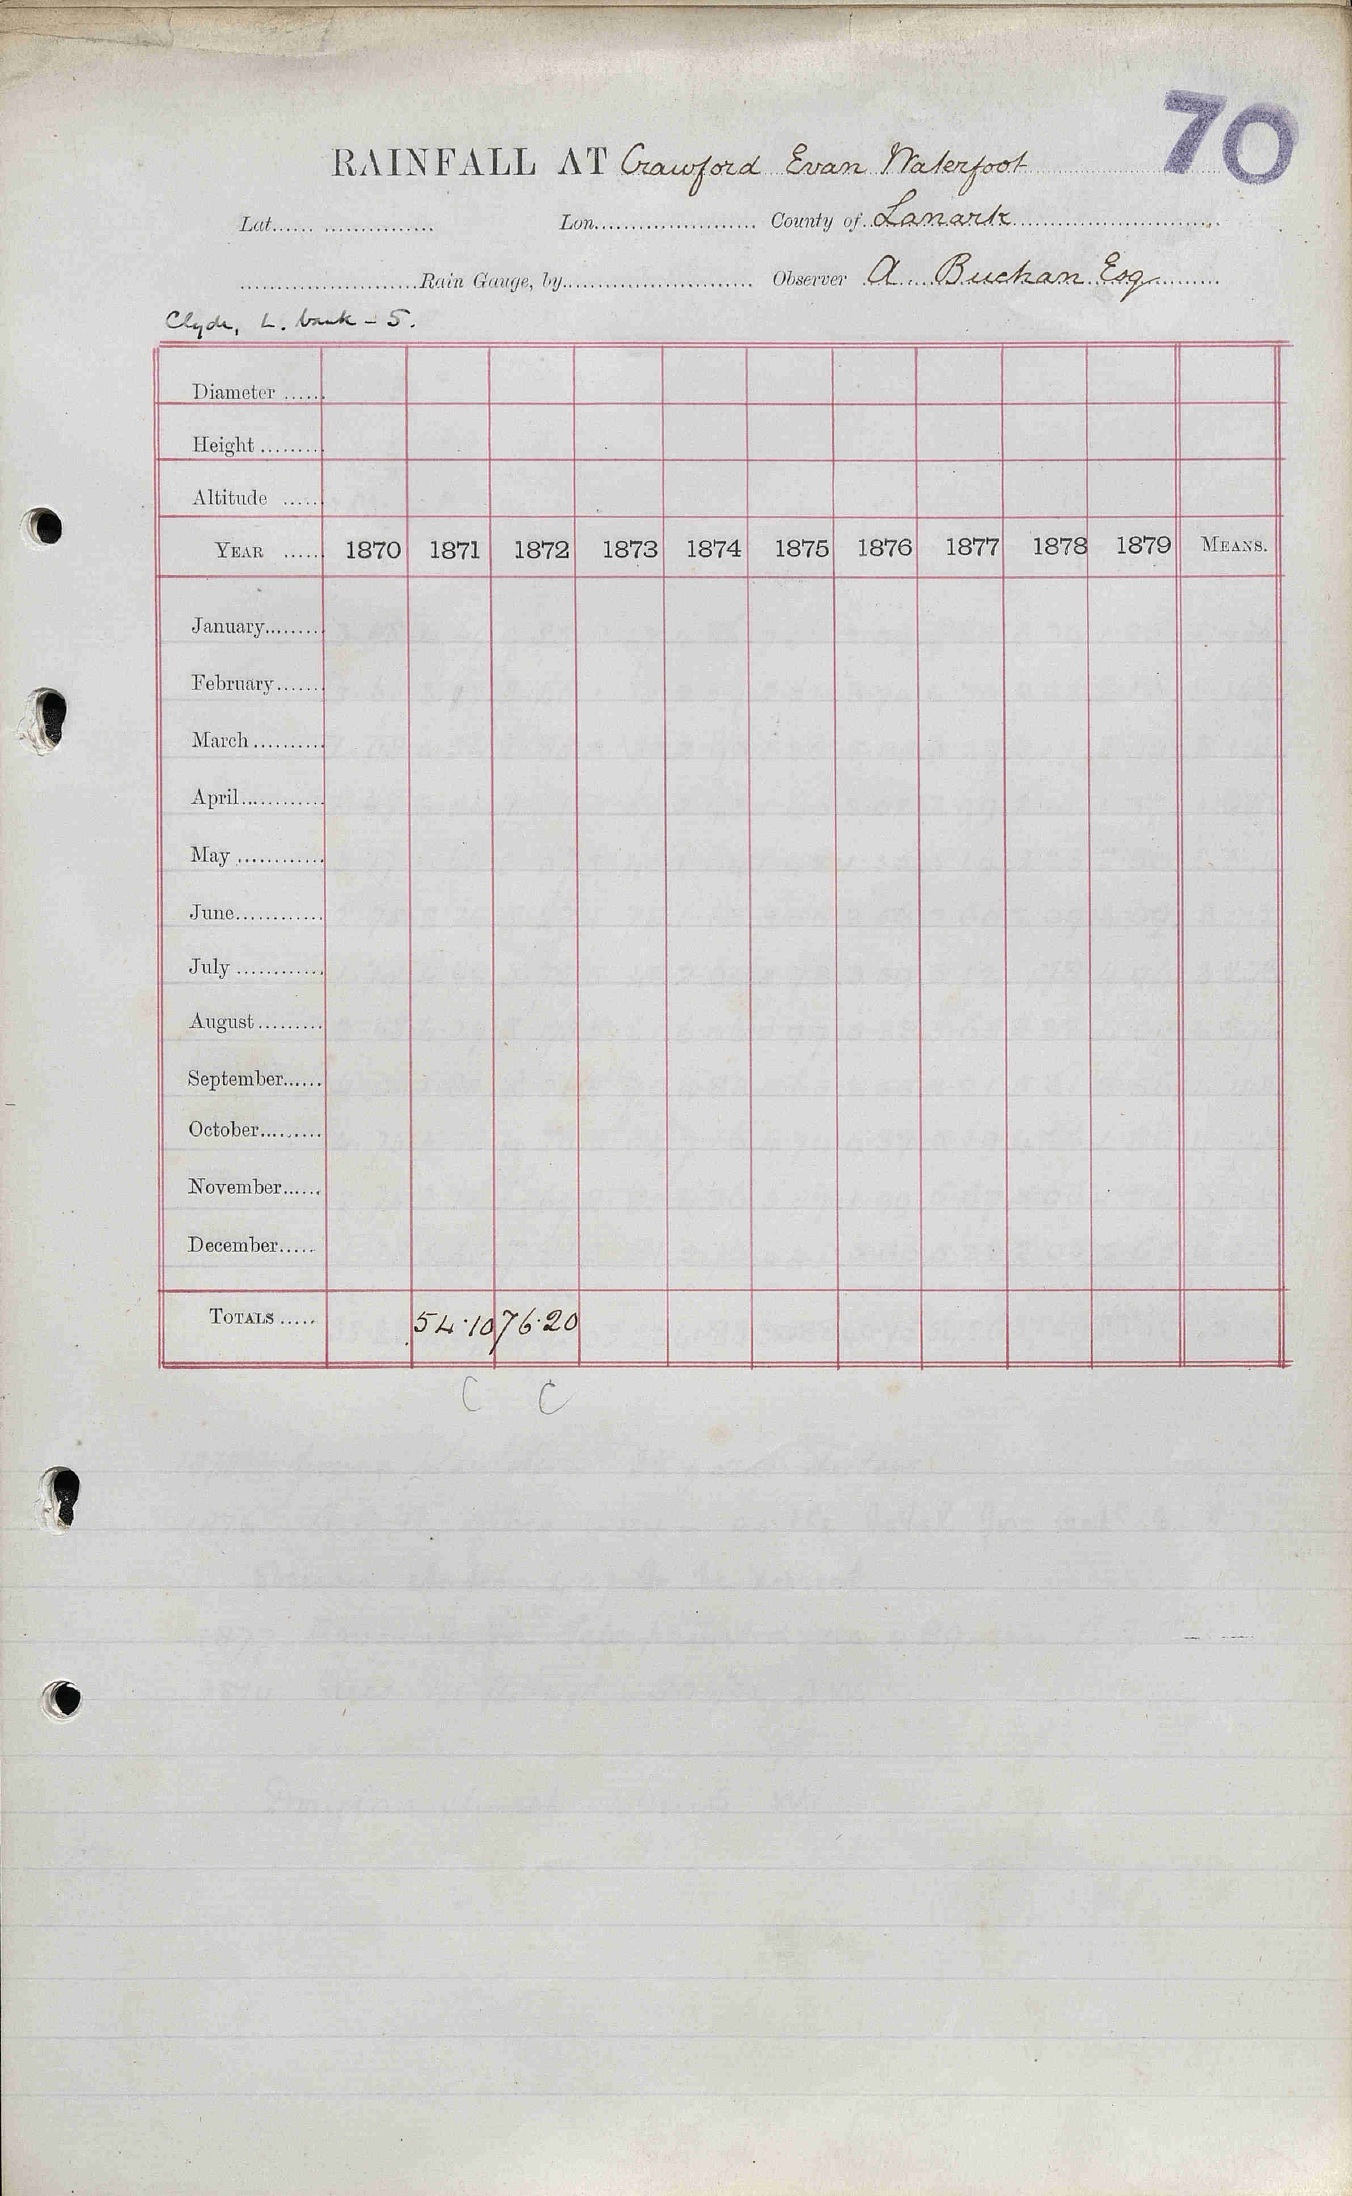 70
RAINFALL AT Crawford Evan Waterfoot
Lat. Lon. County of Lanark
Rain Gauge, by Observer A Buchan Esq
Clyde, L. bank - 5.
Diameter
Height
Altitude
YEAR 1870 1871 1872 1873 1874 1875 1876 1877 1878 1879 MEANS.
January
February
March
April
May
June
July
August
September
October
November
December
TOTALS 54.10 76.20
C C